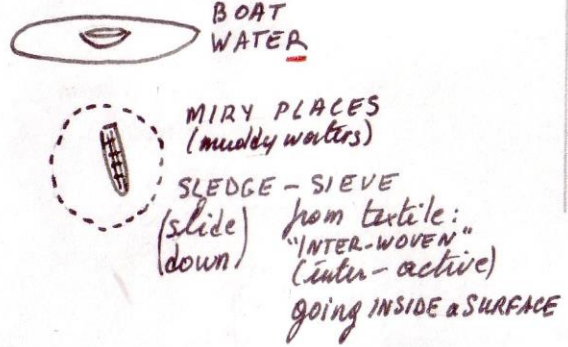 BOAT
WATER
MIRY PLACES
(muddy waters)
SLEDGE - SIEVE
(slide down)
from textile:
"INTER-WOVEN"
(inter-active)
going INSIDE a SURFACE